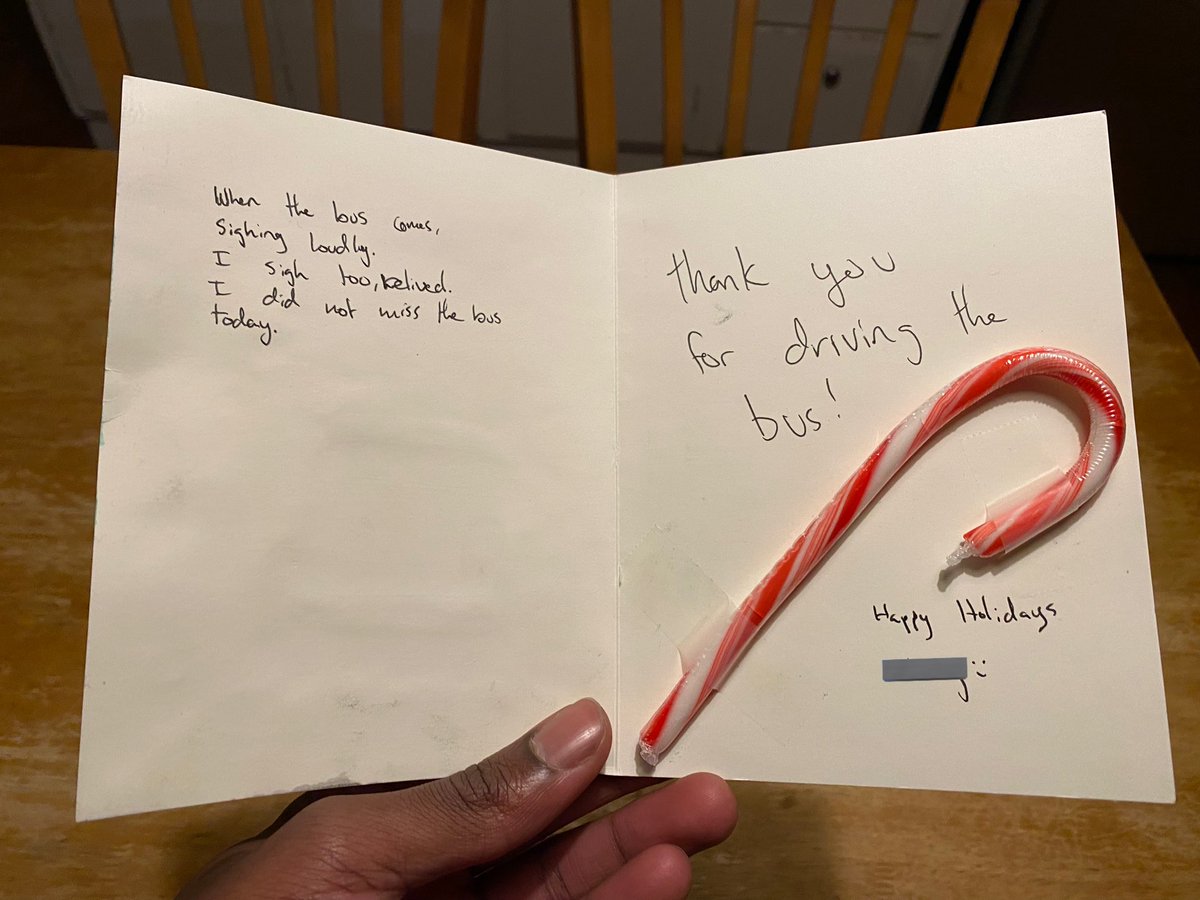 When the bus comes,
Sighing loudly.
I sigh too, relived.
I did not miss the bus
today.
thank you
for driving the
bus!
Happy Holidays